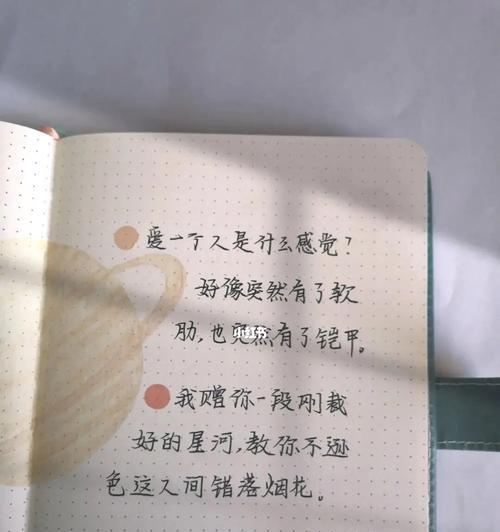 爱一个人是什么感觉?
好像突然有了软
肋,也突然有了铠甲。
小红书
我赠你一段刚裁
好的星河,教你不逊
色这人间错落烟花。